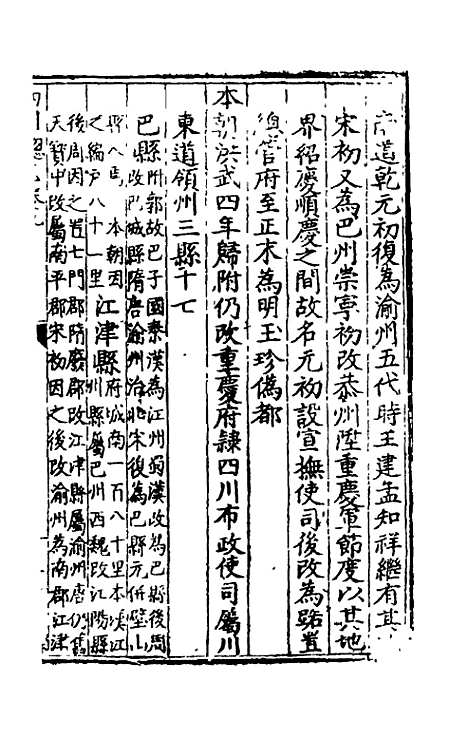 道乾元初復為渝州五代時王建孟知祥繼有其
宋初又為巴州崇寧初改恭州陞重慶軍節度以其地
界紹慶順慶之間故名元初設宣撫使司後改為路置
總管府至正末為明玉珍偽都
本朝洪武四年歸附仍改重慶府隸四川布政使司屬川
東道領州三縣十七
巴縣附郭故巴子國秦漢為江州蜀漢改為巴縣後周
改巴城縣隋唐渝州治此宋復為巴縣元併璧山
縣入焉 本朝因
之編戶八十一里
江津縣
府城南一百八十里本漢江
州縣屬巴州西魏改江陽縣
後周因之置七門郡隋廢郡改江津縣屬渝州唐仍舊
天寶中改屬南平郡宋初因之後改渝州為南郡江津
四川總志卷九